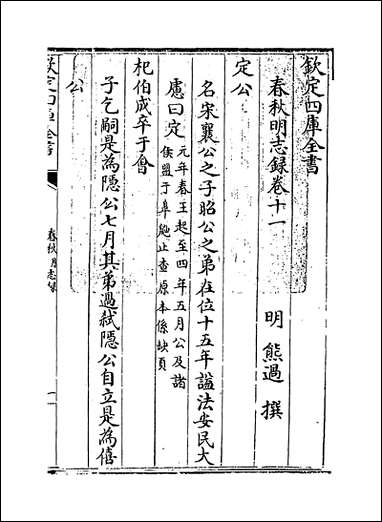 欽定四庫全書
春秋明志録卷十一
明 熊過 撰
定公
名宋襄公之子昭公之弟在位十五年諡法安民大
慮曰定
元年春王起至四年五月公及諸
侯盟于臯鼬止查原本係缺頁
杞伯成卒于會
子乞嗣是為隱公七月其弟過弑隱公自立是為僖
公
欽定四庫全書
春秋明志録